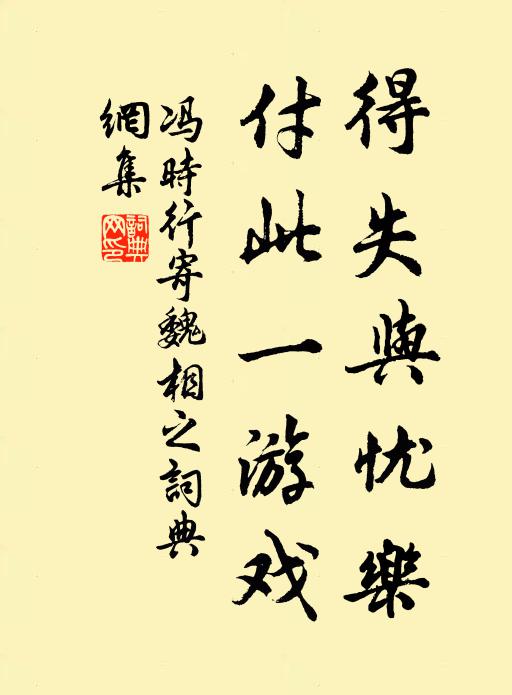 得失與忧樂
付此一游戏
冯時行寄魏相之詞典
網集
詞典網印